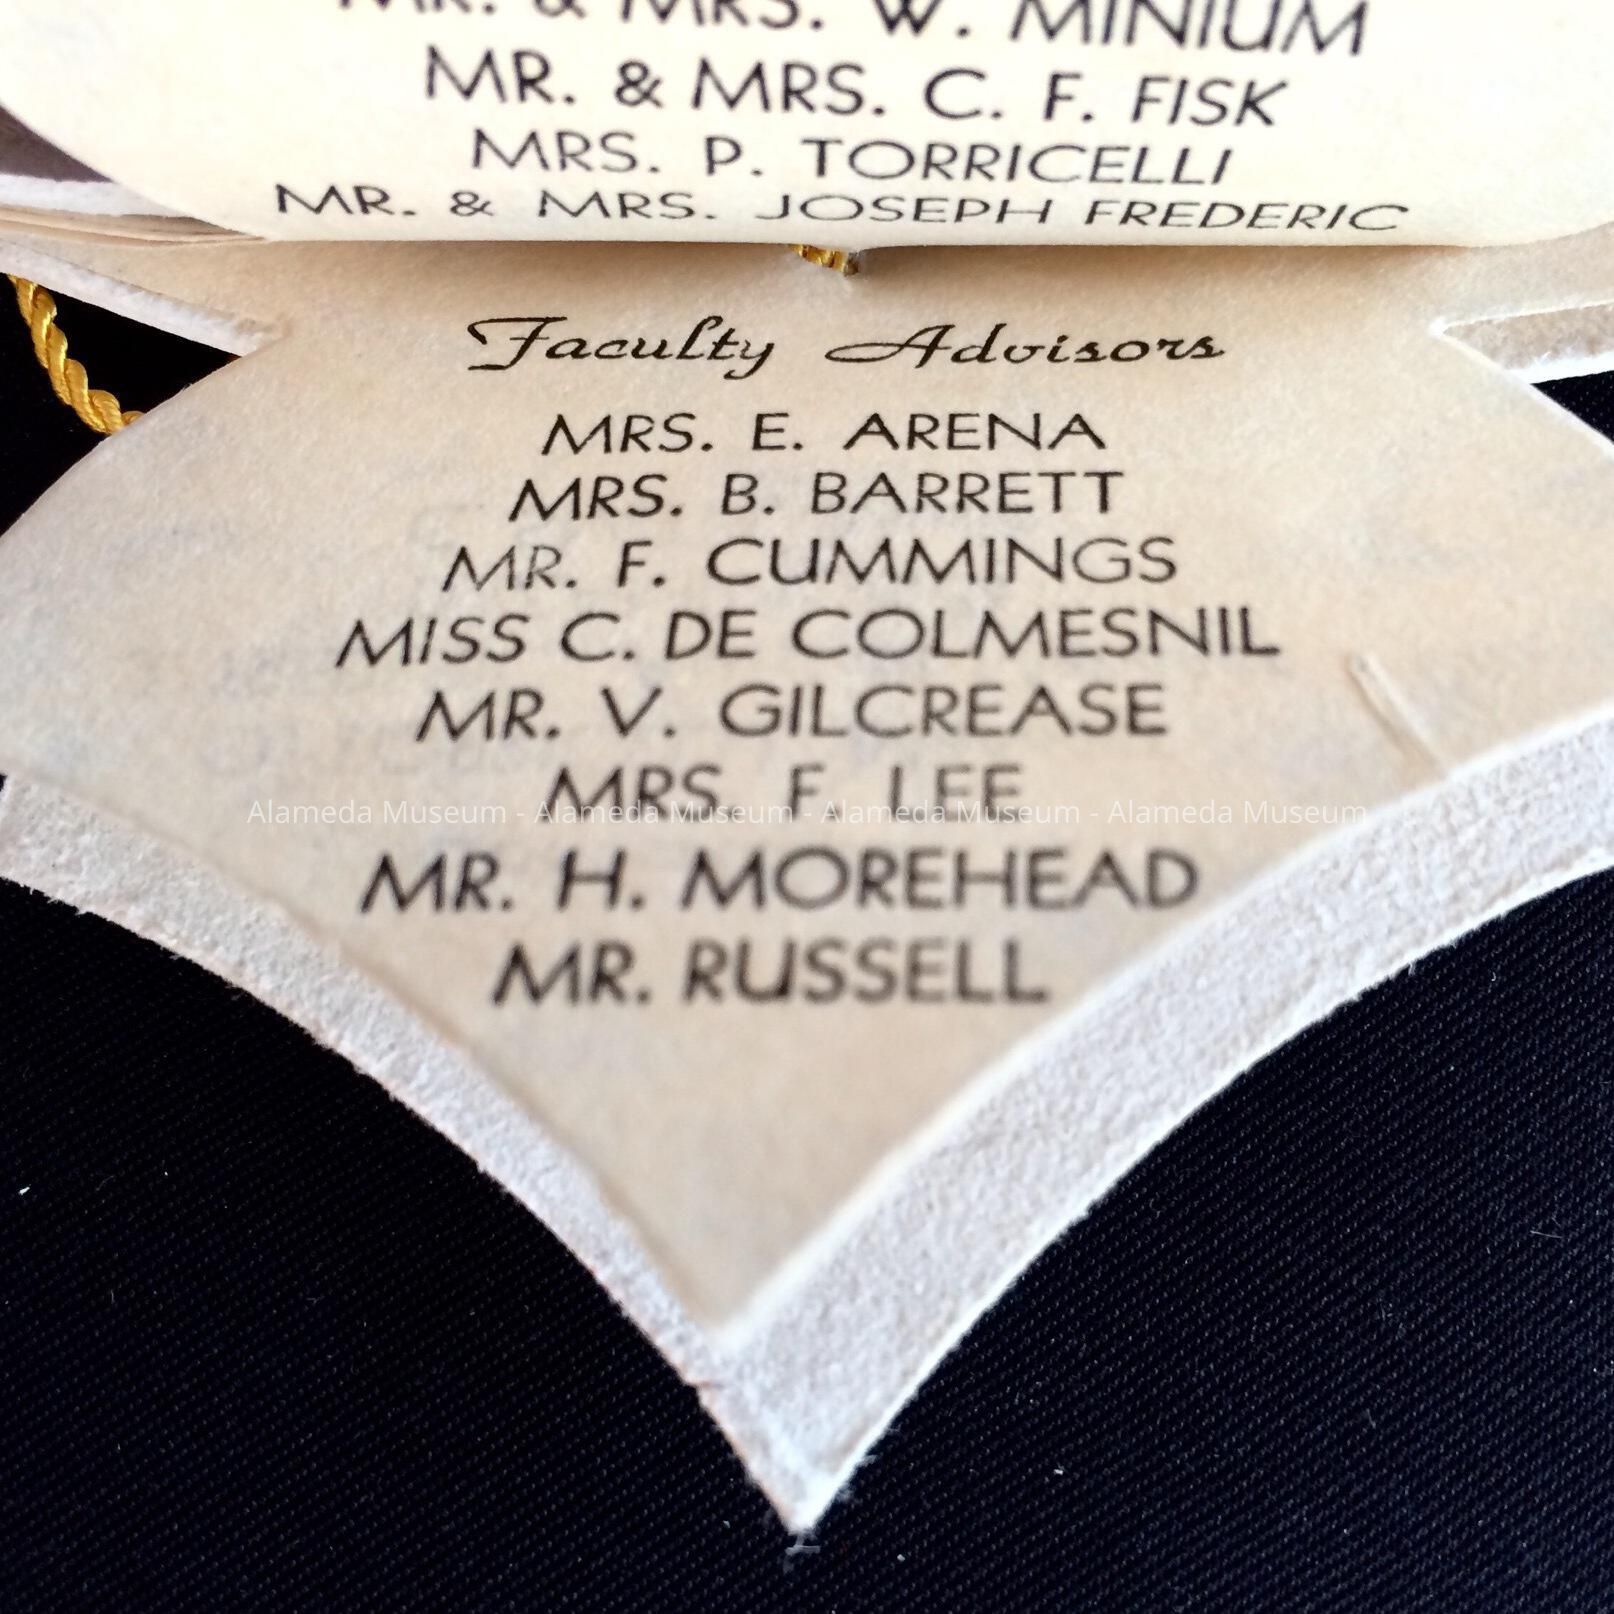 MR. & MRS. W. MINIUM
MR. & MRS. C. F. FISK
MRS. P. TORRICELLI
MR. & MRS. JOSEPH FREDERIC
Faculty Advisors
MRS. E. ARENA
MRS. B. BARRETT
MR. F. CUMMINGS
MISS C. DE COLMESNIL
MR. V. GILCREASE
MRS. F. LEE
Alameda Museum - Alameda Museum - Alameda Museum - Alameda Museum
MR. H. MOREHEAD
MR. RUSSELL